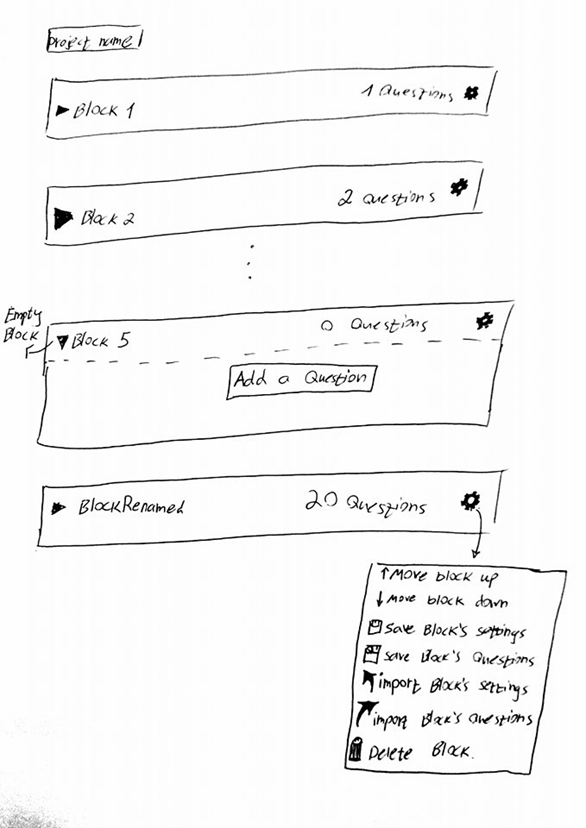 project name
Block 1
1 Questions
Block 2
2 Questions
Empty
Block
Block 5
0 Questions
Add a Question
BlockRenamed
20 Questions
Move block up
Move block down
Save Block's settings
Save Block's Questions
import Block's settings
import Block's Questions
Delete Block.